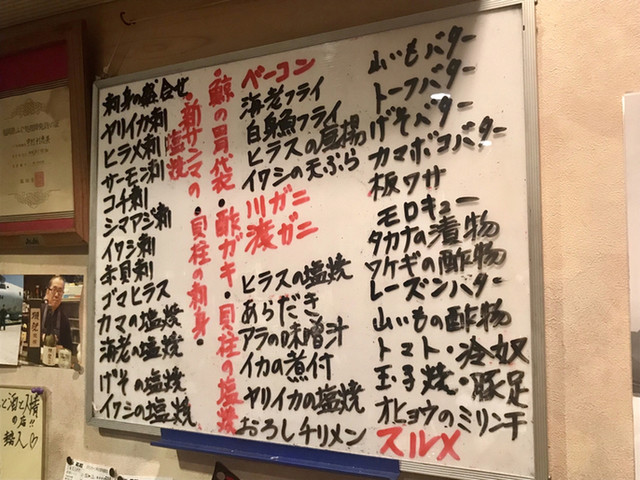 刺身の盛合せ
ヤリイカ刺
ヒラメ刺
サーモン刺
コチ刺
シマアジ刺
イワシ刺
赤貝刺
ゴマヒラス
カマの塩焼
海老の塩焼
げその塩焼
イワシの塩焼
・新サンマの塩焼・貝柱の刺身・
・鯨の胃袋・酢ガキ・貝柱の塩焼
ベーコン
海老フライ
白身魚フライ
ヒラスの唐揚
イワシの天ぷら
川ガニ
渡ガニ
ヒラスの塩焼
あらだき
アラの味噌汁
イカの煮付
ヤリイカの塩焼
おろしチリメン
山いもバター
トーフバター
げそバター
カマボコバター
板ワサ
モロキュー
タカナの漬物
ワケギの酢物
レーズンバター
山いもの酢物
トマト・冷奴
玉子焼・豚足
オヒョウのミリン干
スルメ